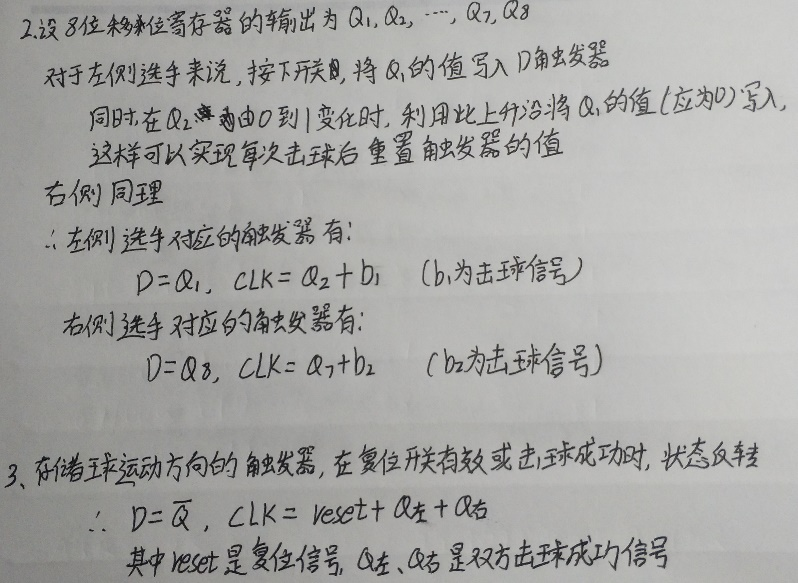 2.设8位移位寄存器的输出为Q₁,Q₂,…,Q₇,Q₈
对于左侧选手来说,按下开关时,将Q₁的值写入D触发器
同时,在Q₂由0到1变化时,利用此上升沿将Q₁的值(应为0)写入,
这样可以实现每次击球后重置触发器的值
右侧同理
∴左侧选手对应的触发器有:
D=Q₁, CLK=Q₂+b₁ (b₁为击球信号)
右侧选手对应的触发器有:
D=Q₈, CLK=Q₇+b₂ (b₂为击球信号)
3、存储球运动方向的触发器,在复位开关有效或击球成功时,状态反转
∴ D=Q̅, CLK=reset+Q左+Q右
其中reset是复位信号,Q左、Q右是双方击球成功信号